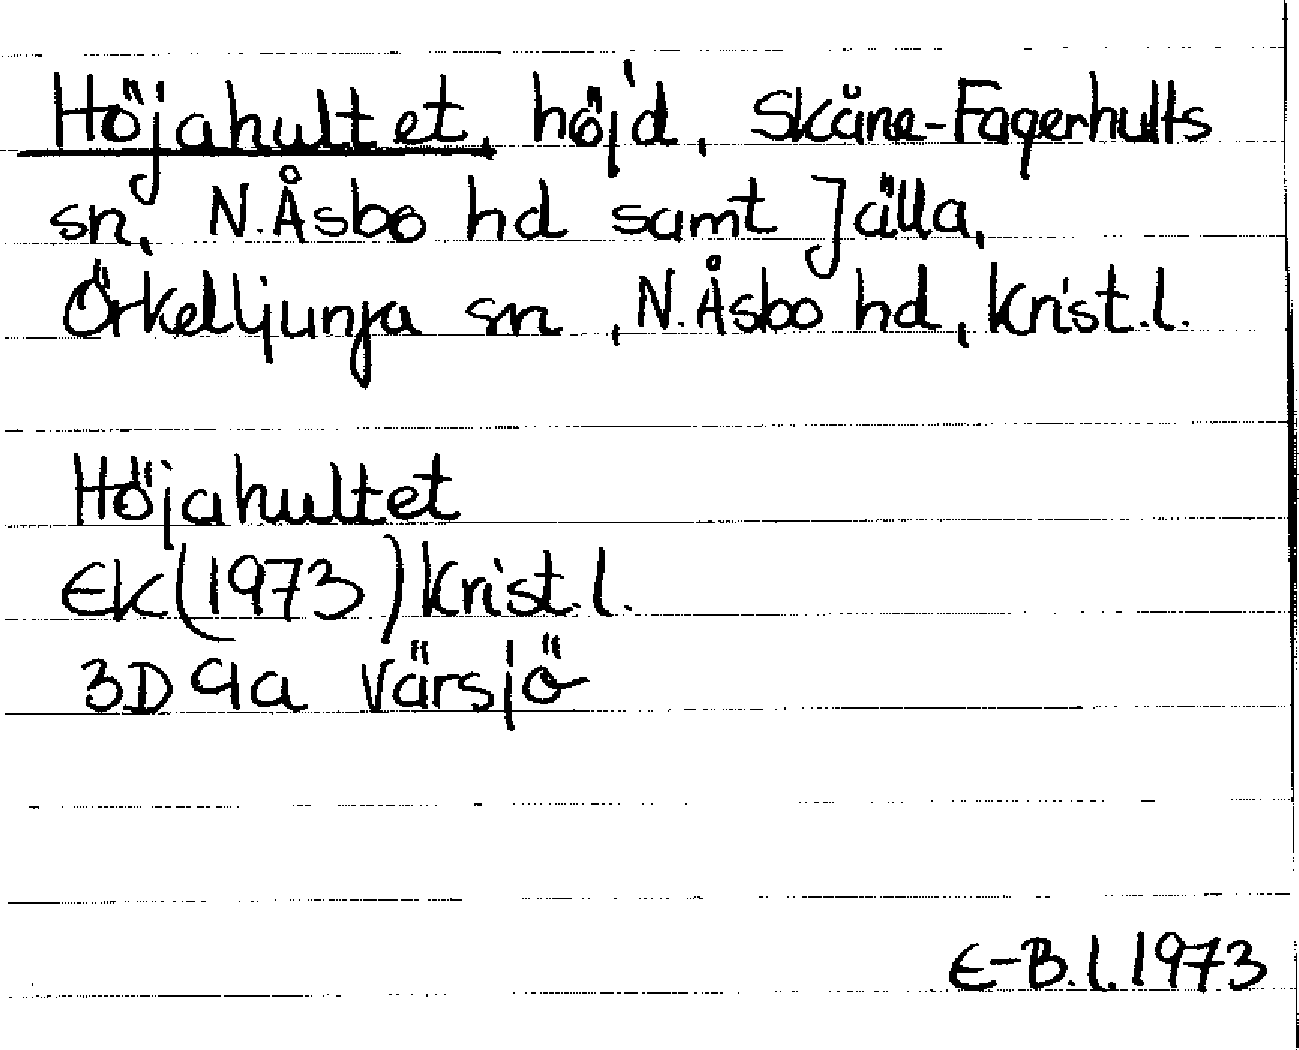 Höjahultet, höjd, Skåne-Fagerhults
sn, N. Åsbo hd samt Jälla,
Örkelljunga sn, N. Åsbo hd, Krist. l.
Höjahultet
EK (1973) Krist. l.
3D 9a Värsjö
E-B. l. 1973